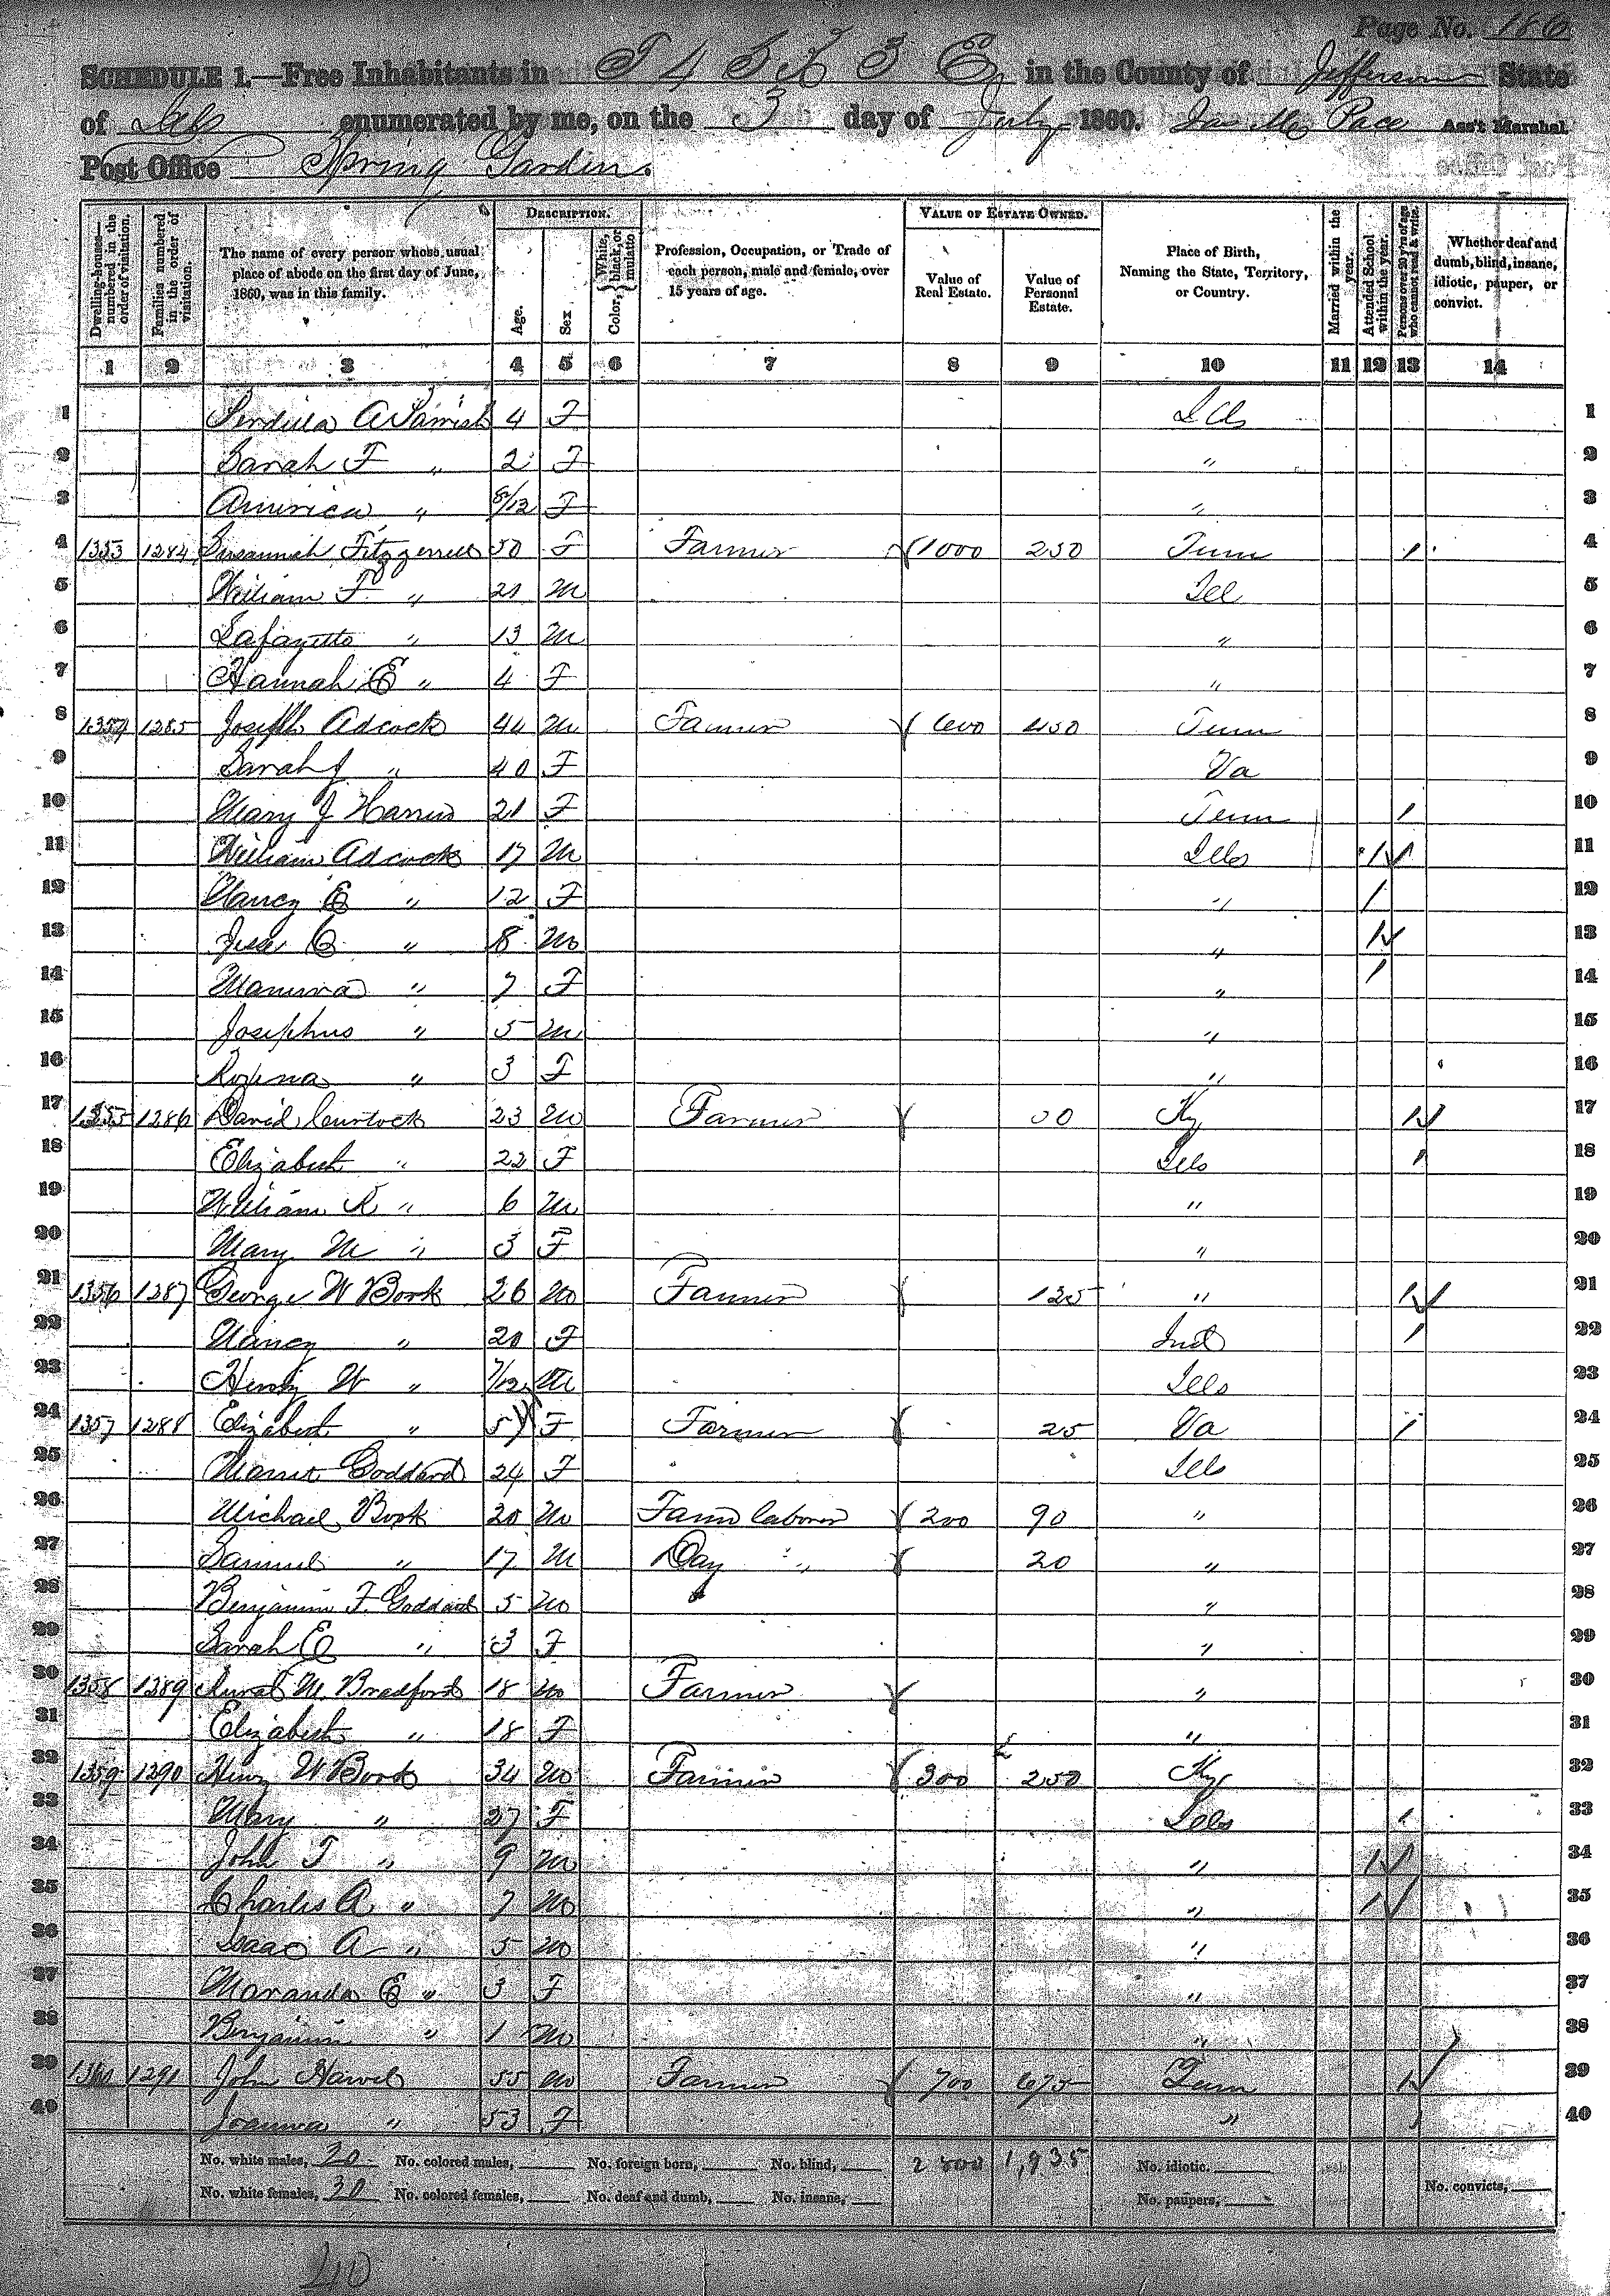 Page No. 186
SCHEDULE 1.—Free Inhabitants in T 4 S R 3 E in the County of Jefferson State
of Ills enumerated by me, on the 3 day of July 1860. Jas M Pace Ass't Marshal
Post Office Spring Garden.
Dwelling-house—numbered in the order of visitation.
Families numbered in the order of visitation.
The name of every person whose usual place of abode on the first day of June, 1860, was in this family.
DESCRIPTION.
Age.
Sex
Color, { White, black, or mulatto
Profession, Occupation, or Trade of each person, male and female, over 15 years of age.
VALUE OF ESTATE OWNED.
Value of Real Estate.
Value of Personal Estate.
Place of Birth, Naming the State, Territory, or Country.
Married within the year.
Attended School within the year.
Persons over 20 y'rs of age who cannot read & write.
Whether deaf and dumb, blind, insane, idiotic, pauper, or convict.
1 2 3 4 5 6 7 8 9 10 11 12 13 14
1 A Parrish 4 F Ills 1
2 Sarah F " 2 F " 2
3 America " 8/12 F " 3
4 1353 1284 Susannah Fitzgerrell 50 F Farmer 1000 250 Tenn / 4
5 William F " 21 M Ill 5
6 Lafayette " 13 M " 6
7 Hannah E " 4 F " 7
8 1354 1285 Joseph Adcock 44 M Farmer 600 450 Tenn 8
9 Sarah J " 40 F Va 9
10 Mary J Harris 21 F Tenn / 10
11 William Adcock 17 M Ills / 11
12 Nancy E " 12 F " / 12
13 Jesse C " 8 M " / 13
14 Manerva " 7 F " / 14
15 Josephus " 5 M " 15
16 Rozena " 3 F " 16
17 1355 1286 David 23 M Farmer 50 Ky / 17
18 Elizabeth " 22 F Ills / 18
19 William R " 6 M " 19
20 Mary M " 3 F " 20
21 1356 1287 George W Book 26 M Farmer 125 " / 21
22 Nancy " 20 F Ind / 22
23 Henry W " 7/12 M Ills 23
24 1357 1288 Elizabeth " 57 F Farmer 25 Va / 24
25 Goddard 24 F Ills 25
26 Michael Book 20 M Farm laborer 200 90 " 26
27 Samuel " 17 M Day " 20 " 27
28 Benjamin F. Goddard 5 M " 28
29 Sarah E " 3 F " 29
30 1358 1289 M. Bradford 18 M Farmer " 30
31 Elizabeth " 18 F " 31
32 1359 1290 Henry W Book 34 M Farmer 300 250 Ky 32
33 Mary " 27 F Ills / 33
34 John T " 9 M " / 34
35 Charles A " 7 M " / 35
36 Isaac A " 5 M " 36
37 Maranda E " 3 F " 37
38 Benjamin " 1 M " 38
39 1360 1291 John Harvel 55 M Farmer 700 675 Tenn / 39
40 Joanna " 53 F " / 40
No. white males, 20 No. colored males, No. foreign born, No. blind, 2800 1,935 No. idiotic.
No. white females, 20 No. colored females, No. deaf and dumb, No. insane, No. paupers, No. convicts,
40